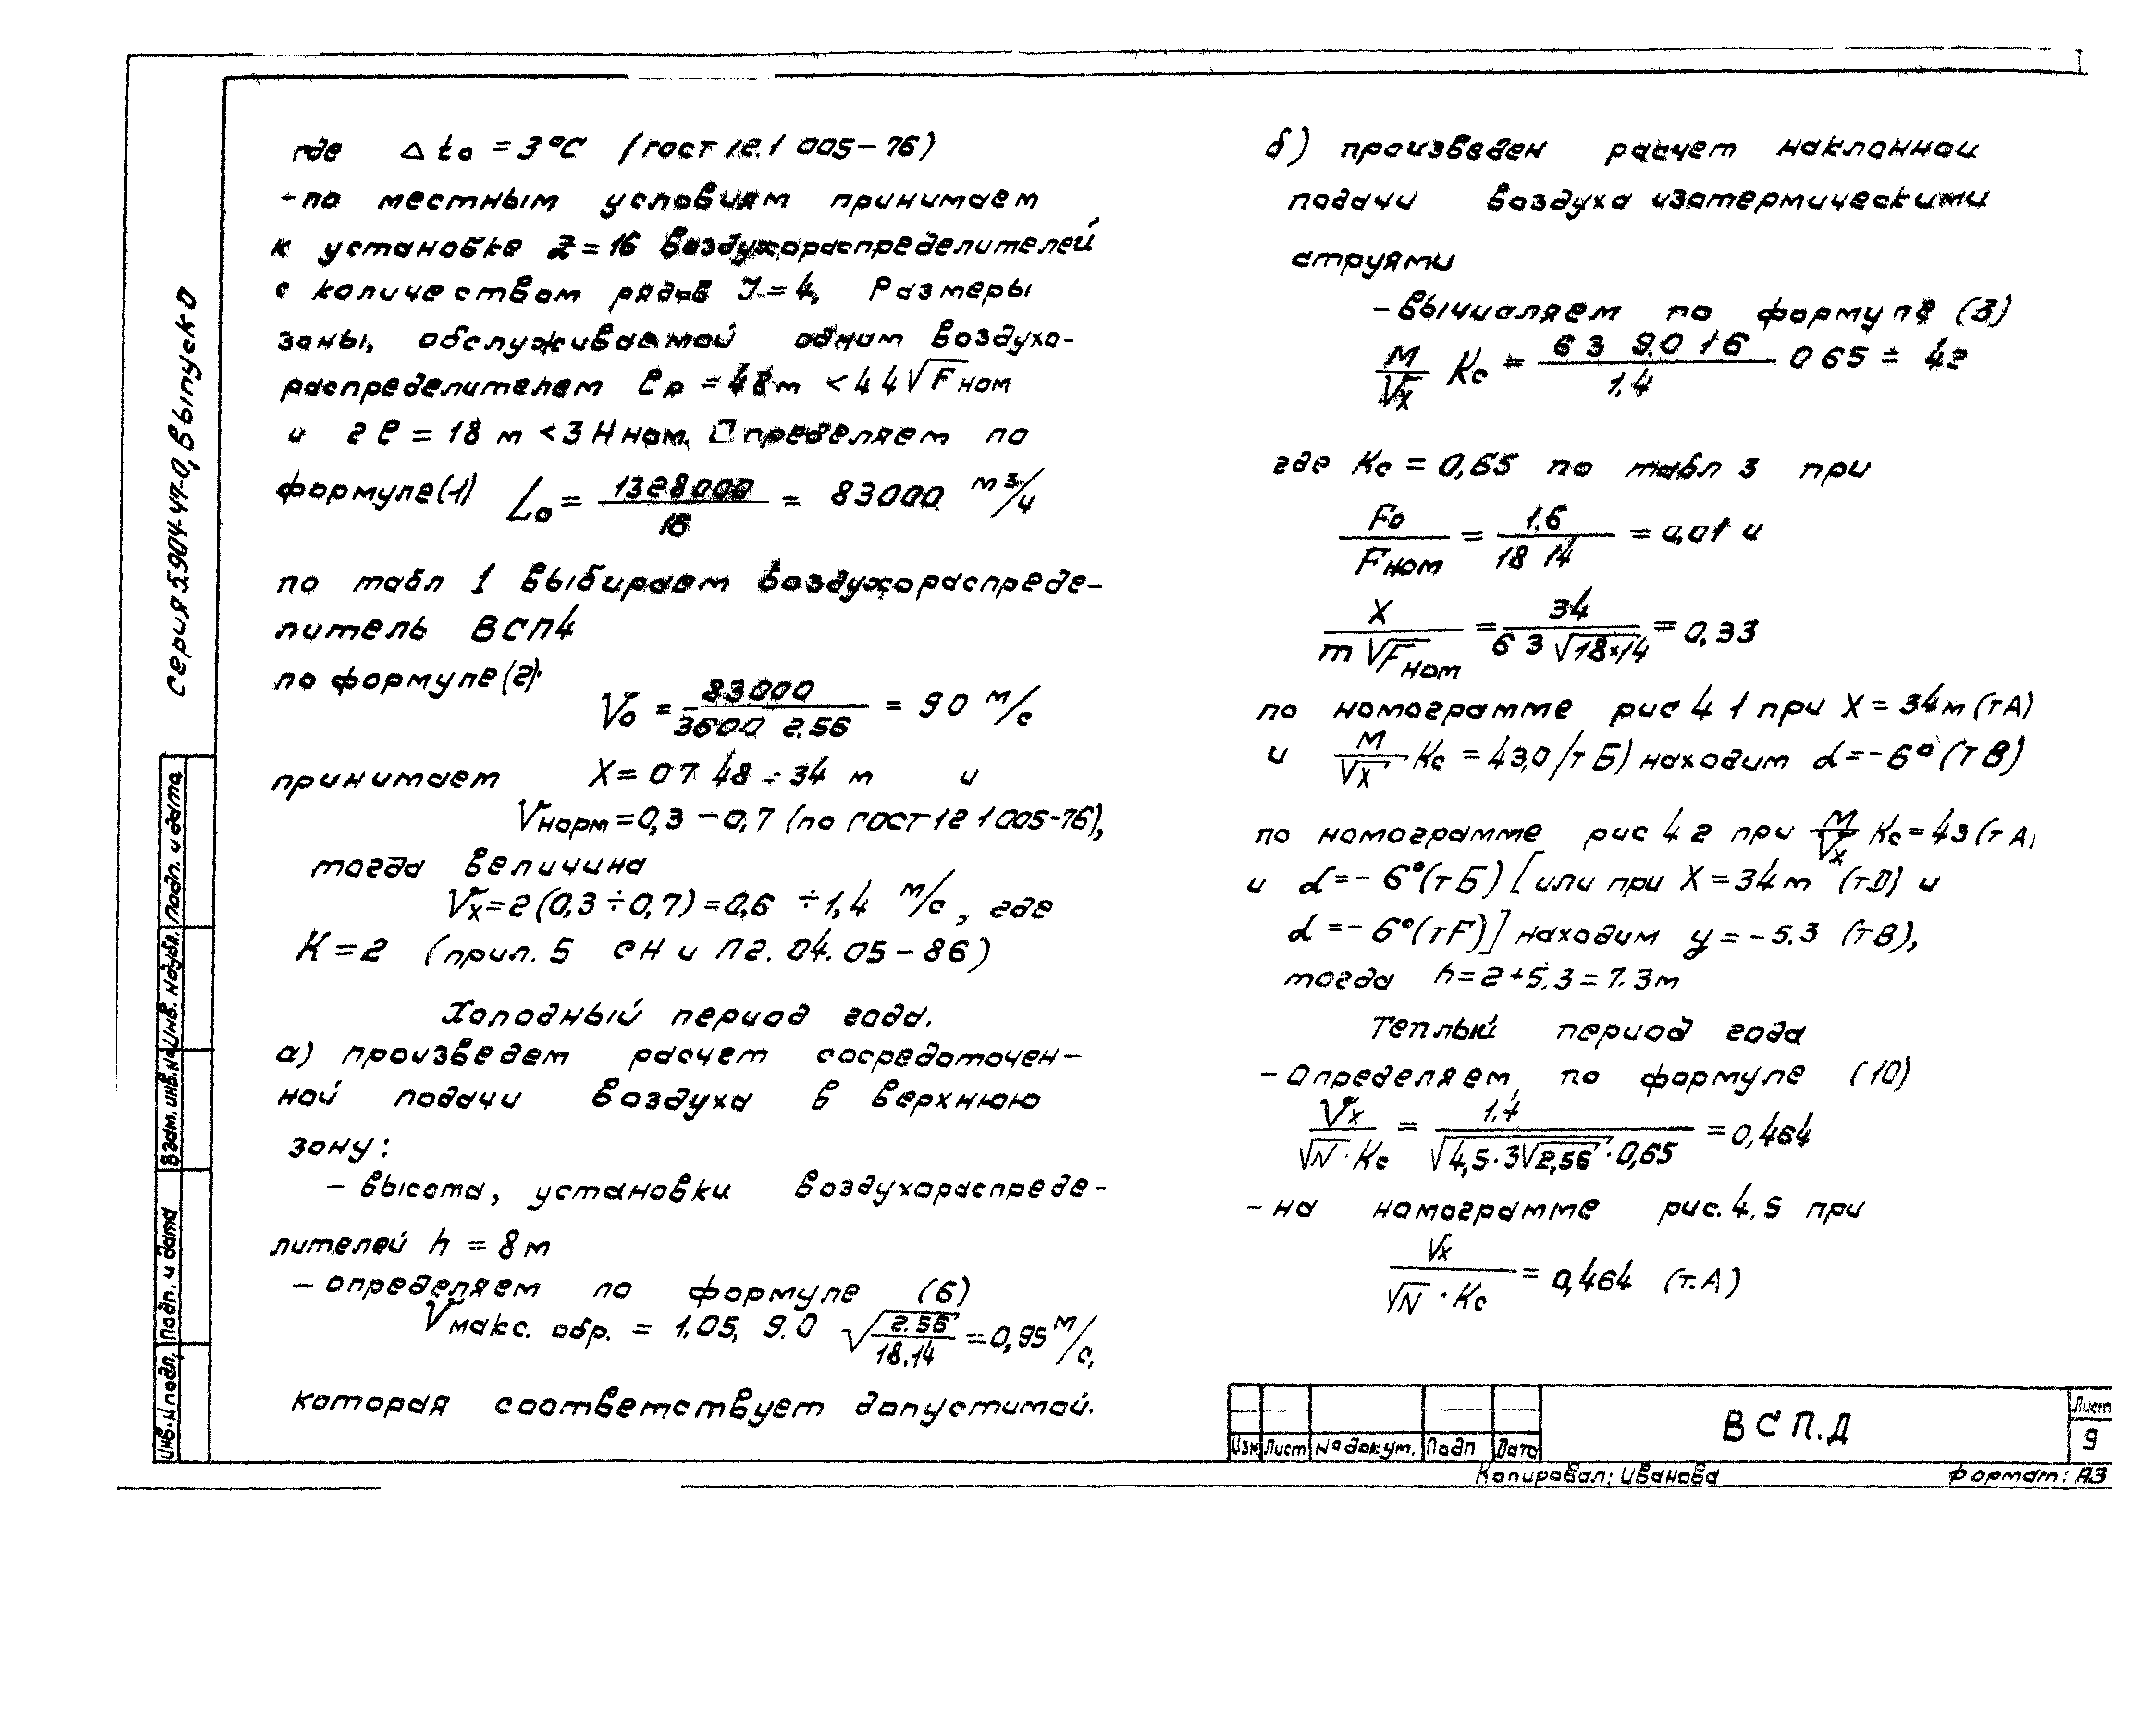 где Δt₀ = 3°С (ГОСТ 12.1 005-76)
-по местным условиям принимаем
к установке Z=16 воздухораспределителей
с количеством рядов J=4, Размеры
зоны, обслуживаемой одним воздухо-
распределителем ℓр = 48м < 4 4√Fном
и 2ℓ = 18 м < 3 Н ном. Определяем по
формуле(1) L₀ = 1328000/16 = 83000 м³/ч
по табл 1 выбираем воздухораспреде-
литель ВСП4
по формуле(2): V₀ = 83000/3600 2.56 = 90 м/с
принимает X = 07 48 ÷ 34 м и
Vнорм=0,3-0,7 (по ГОСТ 12 1 005-76),
тогда величина
Vx=2(0,3÷0,7)=0,6 ÷1,4 м/с, где
К=2 (прил. 5 СН и П2. 04. 05-86)
Холодный период года.
а) произведем расчет сосредоточен-
ной подачи воздуха в верхнюю
зону:
- высота, установки воздухораспреде-
лителей h = 8м
- определяем по формуле (6)
Vмакс. обр. = 1.05, 9.0 √(2.56/18.14) = 0,95 м/с,
которая соответствует допустимой.
б) произведен расчет наклонной
подачи воздуха изотермическими
струями
-вычисляем по формуле (3)
М/Vx Кс = 6 3 9.0 1 6/1.4 0 65 = 42
где Кс = 0,65 по табл 3 при
F₀/Fном = 1.6/18 14 = 0,01 и
X/m√Fном = 34/6 3 √18×14 = 0,33
по номограмме рис 4 1 при X = 34м (тА)
и М/Vx Кс = 43,0 (т Б) находим α=-6° (т В)
по номограмме рис 4 2 при М/Vx Кс=43 (т А)
и α=-6°(т Б) [или при X=34м (тD) и
α=-6°(тF)] находим y=-5.3 (тВ),
тогда h=2+5.3=7.3м
Теплый период года
-определяем, по формуле (10)
Vx/√N·Кс = 1.4/√4,5·3√2,56·0,65 = 0,464
-на номограмме рис. 4.5 при
Vx/√N·Кс = 0,464 (т.А)
Серия 5.904-47-0, выпуск 0
Инв.N подл. Подп. и дата Взам. инв.N Инв. N дубл. Подп. и дата
Изм Лист № докум. Подп Дата
ВСП.Д
Лист
9
Копировал: Иванова Формат: А3